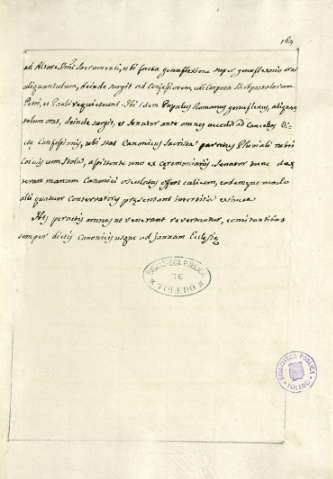 164
ad Altare SSmi Sacramenti, ubi facta genuflexione super genuflexorio orat
aliquantulum, deinde surgit ad Confessionem, ubi Corpora SS. Apostolorum
Petri, et Pauli requiescunt. Ibi idem Populus Romanus genuflexus, aliquan
tulum orat, deinde surgit, et Senator ante omnes accedit ad Cancellos
Confessionis, ubi stat Canonicus Sacrista paratus Pluviali rubri
coloris cum stola, assistente uno ex Ceremoniariis Senator tunc dex
teram manum Canonici osculatus offert calicem, eodemque modo
alii quatuor Conservatores praesentant intortitia
His peractis omnes ut venerant revertuntur, comitantibus
semper dictis Canonicis usque ad Jannam Eclesiae
BIBLIOTECA PUBLICA
DE
TOLEDO
BIBLIOTECA PUBLICA
TOLEDO